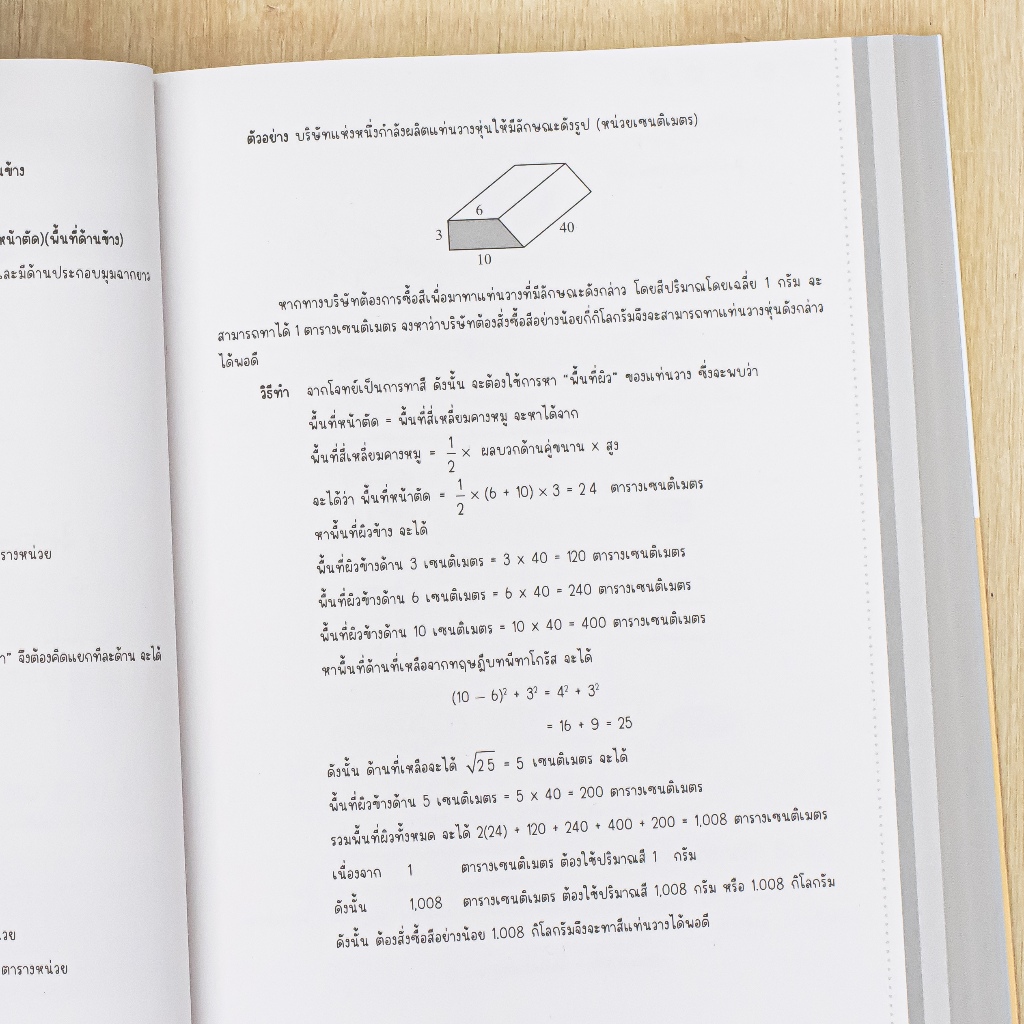 นข้าง
หน้าตัด)(พื้นที่ด้านข้าง)
และมีด้านประกอบมุมฉากยาว
รางหน่วย
จึงต้องคิดแยกทีละด้าน จะได้
ตารางหน่วย
ตัวอย่าง บริษัทแห่งหนึ่งกำลังผลิตแท่นวางหุ่นให้มีลักษณะดังรูป (หน่วยเซนติเมตร)
6
3
40
10
หากทางบริษัทต้องการซื้อสีเพื่อมาทาแท่นวางที่มีลักษณะดังกล่าว โดยสีปริมาณโดยเฉลี่ย 1 กรัม จะ
สามารถทาได้ 1 ตารางเซนติเมตร จงหาว่าบริษัทต้องสั่งซื้อสีอย่างน้อยกี่กิโลกรัมจึงจะสามารถทาแท่นวางหุ่นดังกล่าว
ได้พอดี
วิธีทำ จากโจทย์เป็นการทาสี ดังนั้น จะต้องใช้การหา "พื้นที่ผิว" ของแท่นวาง ซึ่งจะพบว่า
พื้นที่หน้าตัด = พื้นที่สี่เหลี่ยมคางหมู จะหาได้จาก
พื้นที่สี่เหลี่ยมคางหมู = 1/2 × ผลบวกด้านคู่ขนาน × สูง
จะได้ว่า พื้นที่หน้าตัด = 1/2 × (6 + 10) × 3 = 24 ตารางเซนติเมตร
หาพื้นที่ผิวข้าง จะได้
พื้นที่ผิวข้างด้าน 3 เซนติเมตร = 3 × 40 = 120 ตารางเซนติเมตร
พื้นที่ผิวข้างด้าน 6 เซนติเมตร = 6 × 40 = 240 ตารางเซนติเมตร
พื้นที่ผิวข้างด้าน 10 เซนติเมตร = 10 × 40 = 400 ตารางเซนติเมตร
หาพื้นที่ด้านที่เหลือจากทฤษฎีบทพีทาโกรัส จะได้
(10 – 6)² + 3² = 4² + 3²
= 16 + 9 = 25
ดังนั้น ด้านที่เหลือจะได้ √25 = 5 เซนติเมตร จะได้
พื้นที่ผิวข้างด้าน 5 เซนติเมตร = 5 × 40 = 200 ตารางเซนติเมตร
รวมพื้นที่ผิวทั้งหมด จะได้ 2(24) + 120 + 240 + 400 + 200 = 1,008 ตารางเซนติเมตร
เนื่องจาก 1 ตารางเซนติเมตร ต้องใช้ปริมาณสี 1 กรัม
ดังนั้น 1,008 ตารางเซนติเมตร ต้องใช้ปริมาณสี 1,008 กรัม หรือ 1.008 กิโลกรัม
ดังนั้น ต้องสั่งซื้อสีอย่างน้อย 1.008 กิโลกรัมจึงจะทาสีแท่นวางได้พอดี